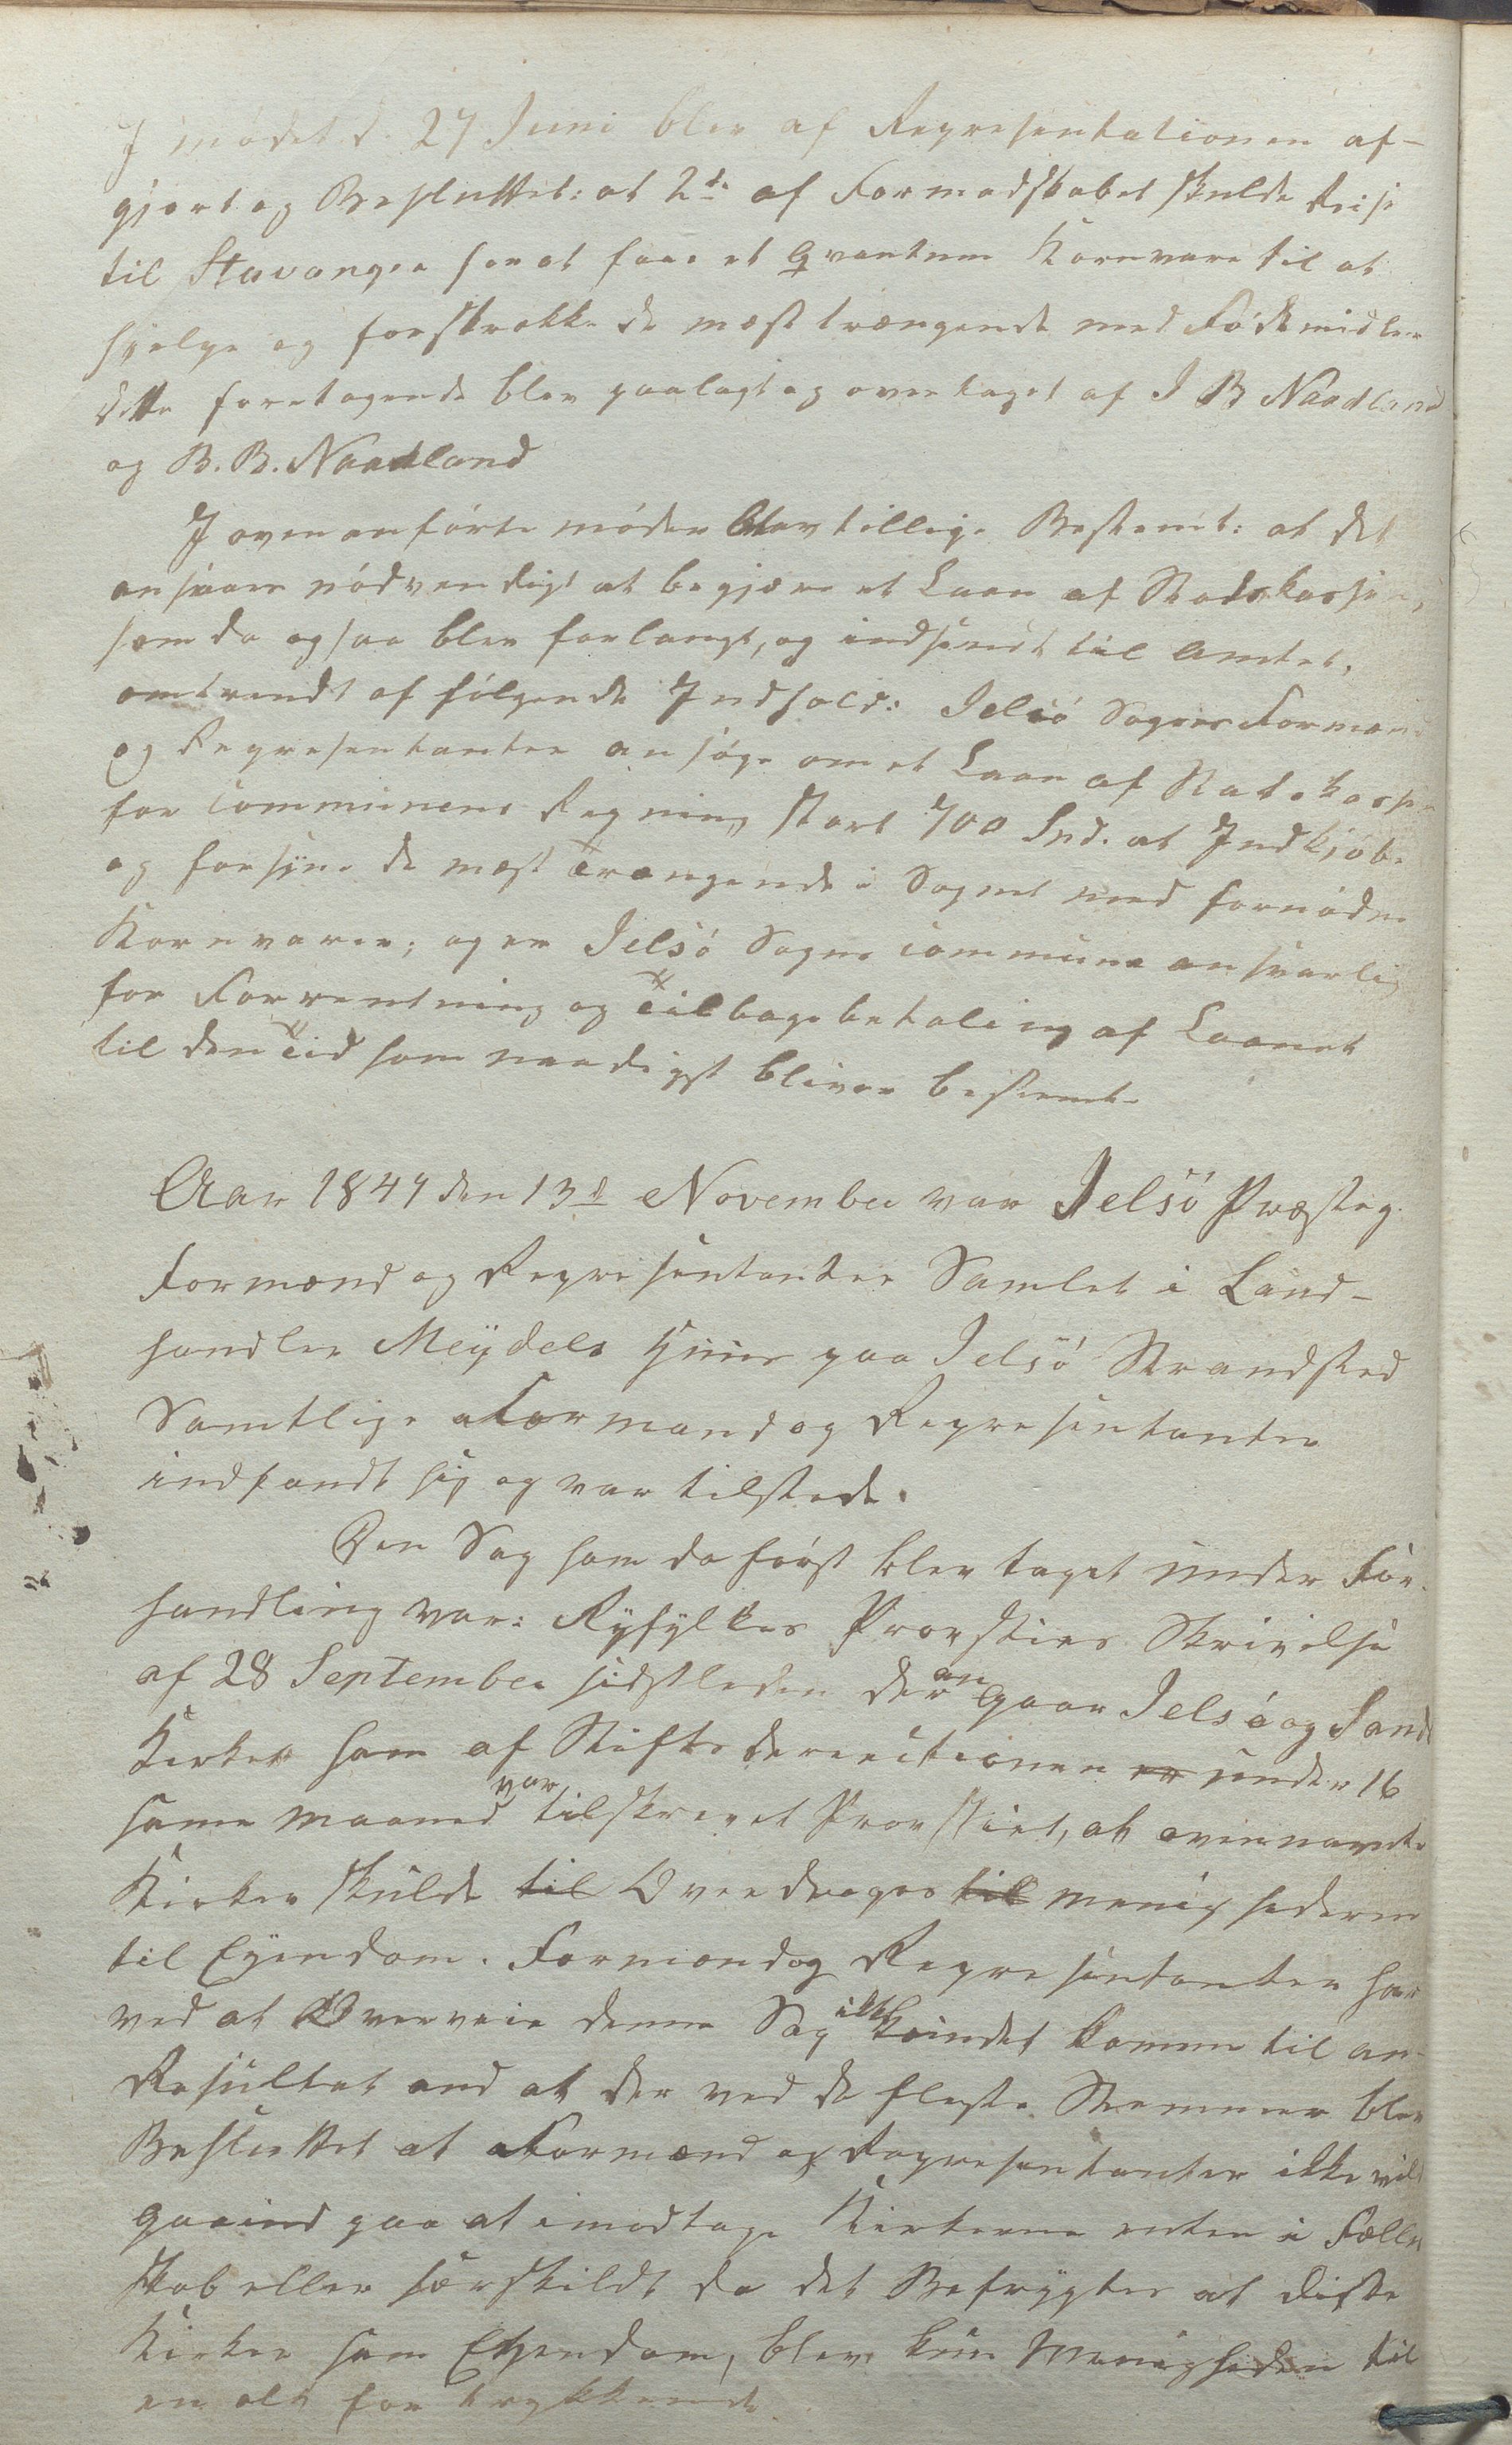 I mødet d. 27 Juni blev af Representationen af-
gjort og Besluttet: at 2de af Formadskabet skulde Reise
til Stavanger for at faae et Qvantum Kornvare til at
hjelpe og forstrække de mest trængende med Fødemidler
dette foretagende blev paalagt og overtaget af J B Naadland
og B. B. Naadland
I ovenanførte møder blev tillige Bestemt: at det
ansaaes nødvendigt at begjære et Laan af Stadskassen,
som da ogsaa blev forlangt, og indsendt til Amtet,
omtrendt af følgende Indhold: Jelsø Sognes Formænd
og Representanter ansøge om et Laan af Statskassen
for Communens Regning stort 700 Spd. at Indkjøbe
og forsyne de mest Trængende i Sognet med fornødne
Kornvarer; og er Jelsø Sogns Commune ansvarlig
for Forrentning og Tilbagebetaling af Laanet
til den Tid som naadigst bliver bestemt.
Aar 1847 den 13d November var Jelsø Præsteg.
Formænd og Representanter Samlet i Land-
handler Meÿdels Huus paa Jelsø Strandsted
Samtlige Formænd og Representanter
indfandt sig og var tilstede.
Den Sag som da først blev taget under For-
handling var: Ryfylkes Provsties Skrivelse
af 28 September sidstleden der angaar Jelsø og Sands
Kirker som af Stifts Dereectionen er under 16
same maaned var tilskrevet Provstiet, at ovennævnte
Kirker skulde til Overdrages til menighederne
til Eÿendom. Formænd og Representanter har
ved at Overveie denne Sag ikke kundet komme til an-
Resultat end at der ved de fleste Stemmer blev
Besluttet at Formænd og Representanter ikke vilde
gaae ind paa at imodtage Kirkerne enten i Felles
skab eller særskildt da det Befrygtes at disse
Kirker som Eÿendom, blev kun Menigheden til
en alt for trykkende